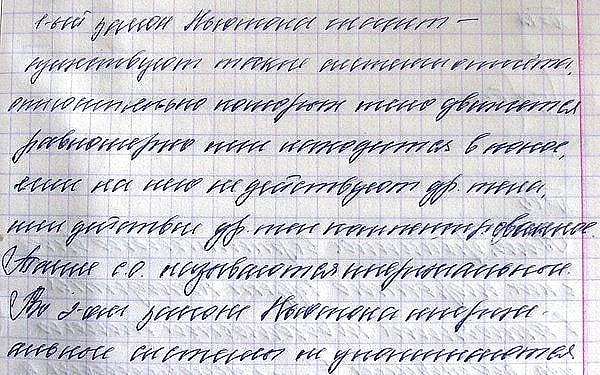 1-ый закон Ньютона гласит –
существуют такие системы отсчёта,
относительно которых тело движется
равномерно или находится в покое,
если на него не действуют др. тела,
или действие др. тел компенсировано.
Такие с.о. называются инерциальные.
Во 2-ом законе Ньютона инерци-
альные системы не упоминаются